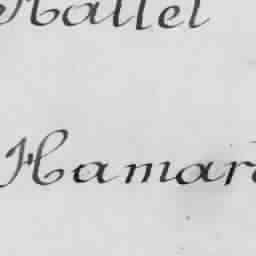 Hallet
Hamar